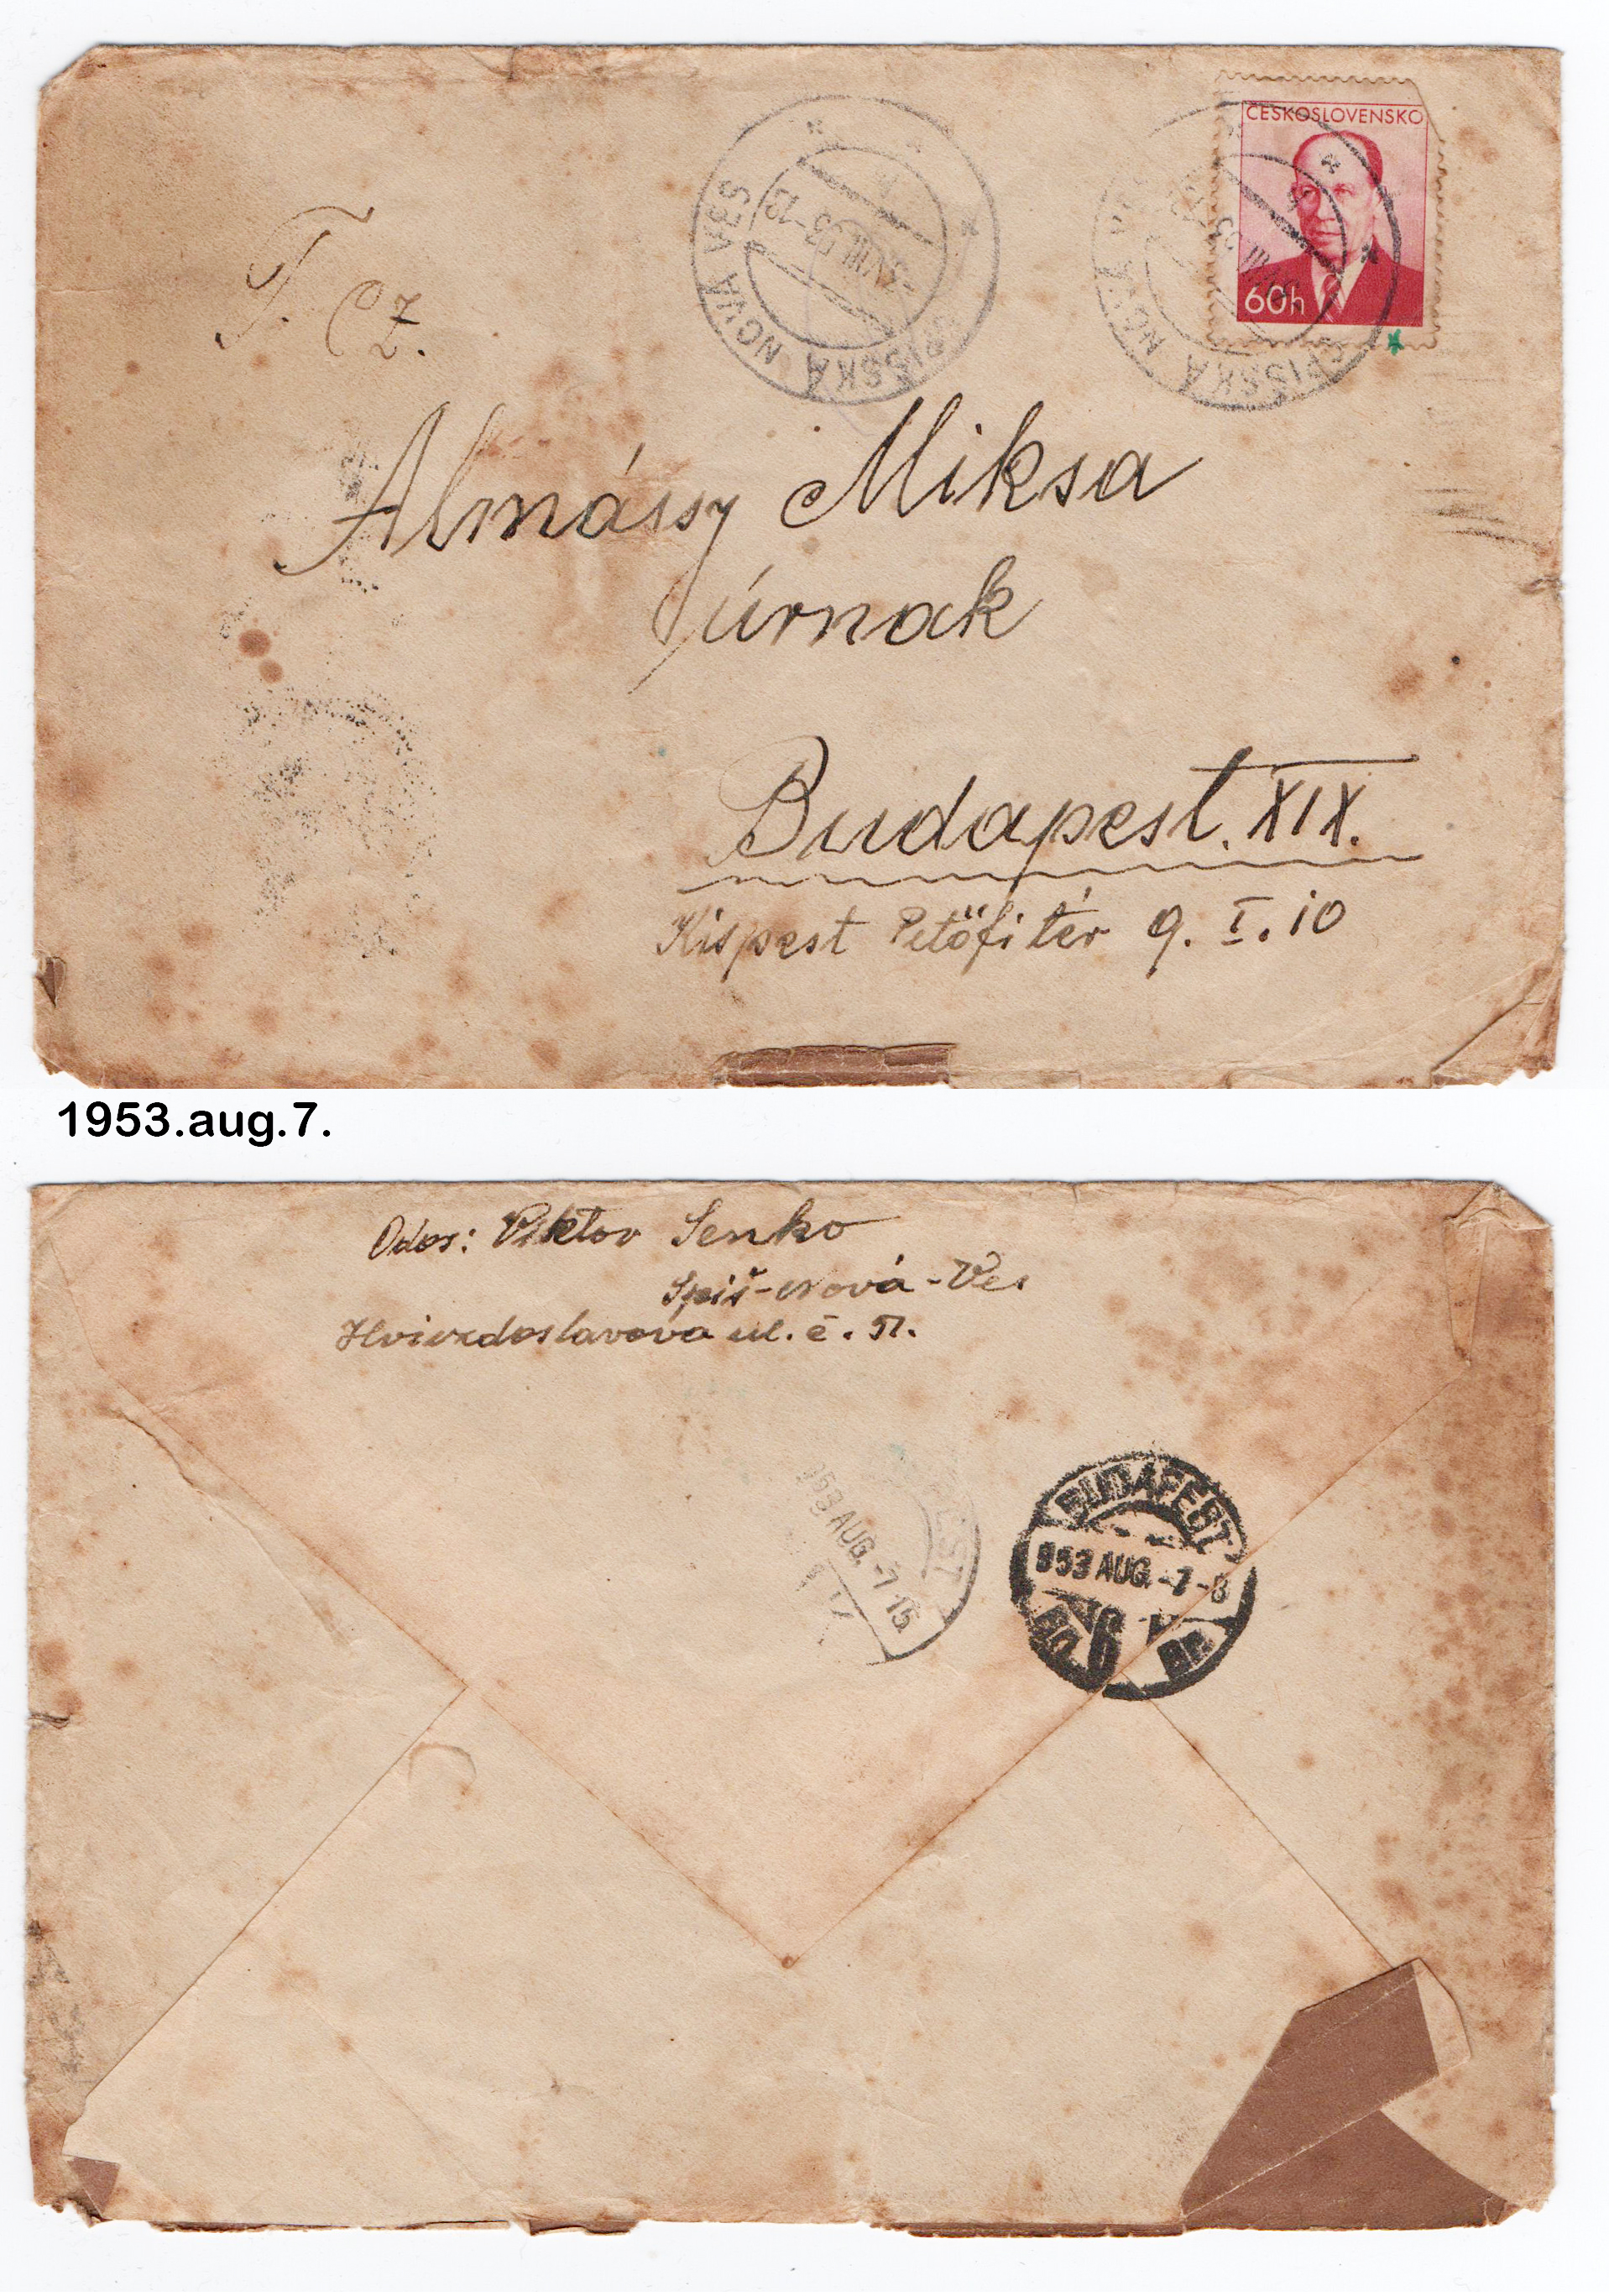 ČESKOSLOVENSKO
60h
SPIŠSKÁ NOVÁ VES
SPIŠSKÁ NOVÁ
T. Cz.
Almássy Miksa
úrnak
Budapest. XIX.
Kispest Petőfi tér 9. I. 10
1953.aug.7.
Odos: Viktor Senko
Spiš-Nová-Ves
Hviezdoslavova ul. č.
BUDAPEST
953 AUG. -7 - 8
953 AUG. -7. 15